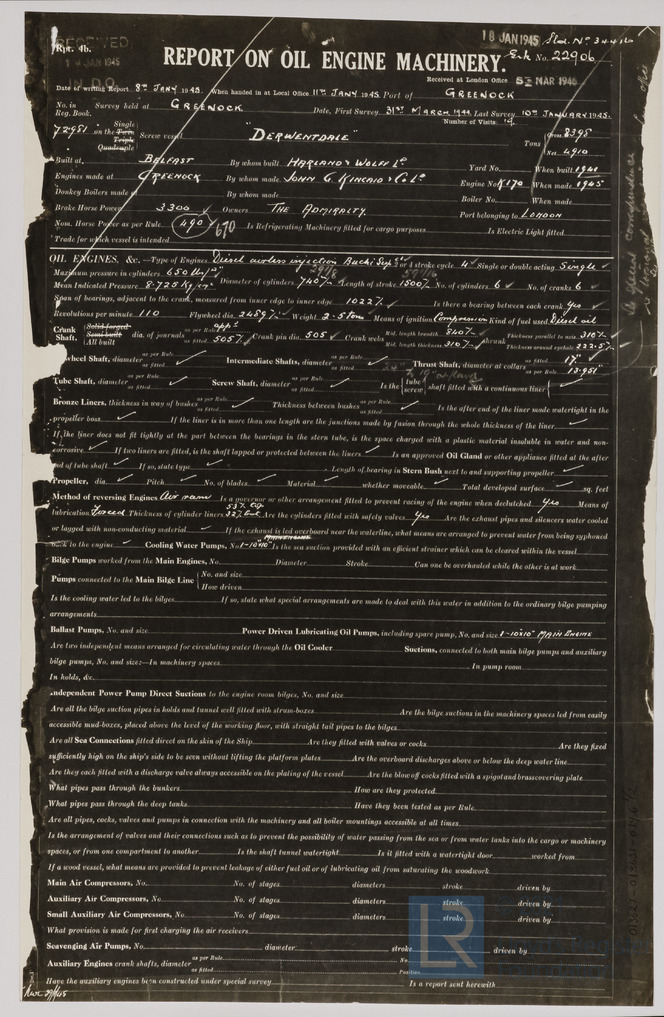 Rpt. 4b.
RECEIVED
JAN 1945
IN D.O.
18 JAN 1945
REPORT ON OIL ENGINE MACHINERY.
No. 22906
Received at London Office 5 MAR 1945
Date of writing Report 8th JANY 1945. When handed in at Local Office 11th JANY 1945. Port of GREENOCK
No. in Reg. Book. Survey held at GREENOCK Date, First Survey 31st MARCH 1944 Last Survey 10th JANUARY 1945.
Number of Visits
72981 on the Single Twin Triple Quadruple Screw vessel "DERWENTDALE" Tons Gross 8398 Net 4910
Built at BELFAST By whom built HARLAND & WOLFF Ld Yard No. When built 1941
Engines made at GREENOCK By whom made JOHN G. KINCAID & Co Ld Engine No. K170 When made 1945
Donkey Boilers made at By whom made Boiler No. When made
Brake Horse Power 3300 Owners THE ADMIRALTY Port belonging to LONDON
Nom. Horse Power as per Rule 490 670 Is Refrigerating Machinery fitted for cargo purposes Is Electric Light fitted
Trade for which vessel is intended
OIL ENGINES, &c.—Type of Engines Diesel airless injection 2 or 4 stroke cycle 4 Single or double acting Single
Maximum pressure in cylinders 650 lbs/□" Diameter of cylinders 740 Length of stroke 1500 No. of cylinders 6 No. of cranks 6
Mean Indicated Pressure 8.725 Kg/cm²
Span of bearings, adjacent to the crank, measured from inner edge to inner edge 1022 Is there a bearing between each crank yes
Revolutions per minute 110 Flywheel dia. 2489 Weight 2.5 tons Means of ignition Compression Kind of fuel used Diesel oil
Crank Shaft, Solid forged Semi built All built dia. of journals as per Rule appd as fitted 505 Crank pin dia. 505 Crank webs Mid. length breadth 840 Mid. length thickness 310 shrunk Thickness parallel to axis 310 Thickness around eyehole 222.5
wheel Shaft, diameter as per Rule as fitted Intermediate Shafts, diameter as per Rule as fitted Thrust Shaft, diameter at collars as fitted 17" as per Rule 13.951"
Tube Shaft, diameter as per Rule as fitted Screw Shaft, diameter as per Rule as fitted Is the tube screw shaft fitted with a continuous liner
Bronze Liners, thickness in way of bushes as per Rule as fitted Thickness between bushes as per Rule as fitted Is the after end of the liner made watertight in the
propeller boss If the liner is in more than one length are the junctions made by fusion through the whole thickness of the liner
If the liner does not fit tightly at the part between the bearings in the stern tube, is the space charged with a plastic material insoluble in water and non-
corrosive If two liners are fitted, is the shaft lapped or protected between the liners Is an approved Oil Gland or other appliance fitted at the after
end of tube shaft If so, state type Length of bearing in Stern Bush next to and supporting propeller
Propeller, dia. Pitch No. of blades Material whether moveable Total developed surface sq. feet
Method of reversing Engines Air ram Is a governor or other arrangement fitted to prevent racing of the engine when declutched Yes Means of
lubrication Forced Thickness of cylinder liners Are the cylinders fitted with safety valves Yes Are the exhaust pipes and silencers water cooled
or lagged with non-conducting material If the exhaust is led overboard near the waterline, what means are arranged to prevent water from being syphoned
back to the engine Cooling Water Pumps, No. Is the sea suction provided with an efficient strainer which can be cleared within the vessel
Bilge Pumps worked from the Main Engines, No. Diameter Stroke Can one be overhauled while the other is at work
Pumps connected to the Main Bilge Line No. and size How driven
Is the cooling water led to the bilges If so, state what special arrangements are made to deal with this water in addition to the ordinary bilge pumping
arrangements
Ballast Pumps, No. and size Power Driven Lubricating Oil Pumps, including spare pump, No. and size MAIN ENGINE
Are two independent means arranged for circulating water through the Oil Cooler Suctions, connected to both main bilge pumps and auxiliary
bilge pumps, No. and size:—In machinery spaces In pump room
In holds, &c.
Independent Power Pump Direct Suctions to the engine room bilges, No. and size
Are all the bilge suction pipes in holds and tunnel well fitted with strum-boxes Are the bilge suctions in the machinery spaces led from easily
accessible mud-boxes, placed above the level of the working floor, with straight tail pipes to the bilges
Are all Sea Connections fitted direct on the skin of the Ship Are they fitted with valves or cocks Are they fixed
sufficiently high on the ship's side to be seen without lifting the platform plates Are the overboard discharges above or below the deep water line
Are they each fitted with a discharge valve always accessible on the plating of the vessel Are the blow off cocks fitted with a spigot and brass covering plate
What pipes pass through the bunkers How are they protected
What pipes pass through the deep tanks Have they been tested as per Rule
Are all pipes, cocks, valves and pumps in connection with the machinery and all boiler mountings accessible at all times
Is the arrangement of valves and their connections such as to prevent the possibility of water passing from the sea or from water tanks into the cargo or machinery
spaces, or from one compartment to another Is the shaft tunnel watertight Is it fitted with a watertight door worked from
If a wood vessel, what means are provided to prevent leakage of either fuel oil or of lubricating oil from saturating the woodwork
Main Air Compressors, No. No. of stages diameters stroke driven by
Auxiliary Air Compressors, No. No. of stages diameters stroke driven by
Small Auxiliary Air Compressors, No. No. of stages diameters stroke driven by
What provision is made for first charging the air receivers
Scavenging Air Pumps, No. diameter stroke driven by
Auxiliary Engines crank shafts, diameter as per Rule as fitted No. Position
Have the auxiliary engines been constructed under special survey Is a report sent herewith
LR